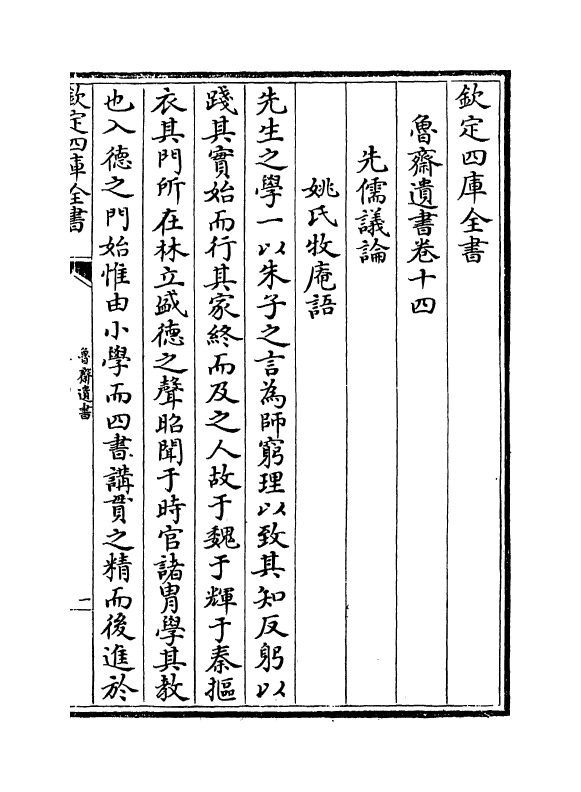 欽定四庫全書
魯齋遺書卷十四
先儒議論
姚氏牧庵語
先生之學一以朱子之言為師窮理以致其知反躬以
踐其實始而行其家終而及之人故于魏于輝于秦摳
衣其門所在林立盛德之聲昭聞于時官諸胄學其教
也入德之門始惟由小學而四書講貫之精而後進於
欽定四庫全書
魯齋遺書
一